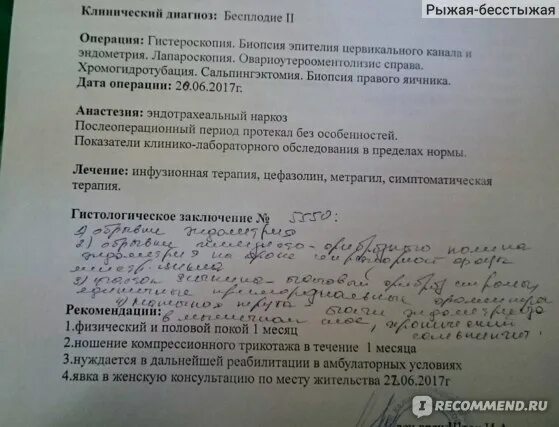 Рыжая-бесстыжая
Клинический диагноз: Бесплодие II
Операция: Гистероскопия. Биопсия эпителия цервикального канала и
эндометрия. Лапароскопия. Овариоутероoментолизис справа.
Хромогидротубация. Сальпингэктомия. Биопсия правого яичника.
Дата операции: 20.06.2017г.
Анастезия: эндотрахеальный наркоз
Послеоперационный период протекал без особенностей.
Показатели клинико-лабораторного обследования в пределах нормы.
Лечение: инфузионная терапия, цефазолин, метрагил, симптоматическая
терапия.
Гистологическое заключение № 5550:
1) обрывки эндометрия
2) обрывки железисто-фиброзного полипа
эндометрия на фоне секреторной фазы
3) участок яичника
единичные примордиальные фолликулы
4) маточная труба
Рекомендации:
в мышечном слое, хронический
сальпингит.
1.физический и половой покой 1 месяц
2.ношение компрессионного трикотажа в течение 1 месяца
3.нуждается в дальнейшей реабилитации в амбулаторных условиях
4.явка в женскую консультацию по месту жительства 22.06.2017г
IRECOMMEND.RU